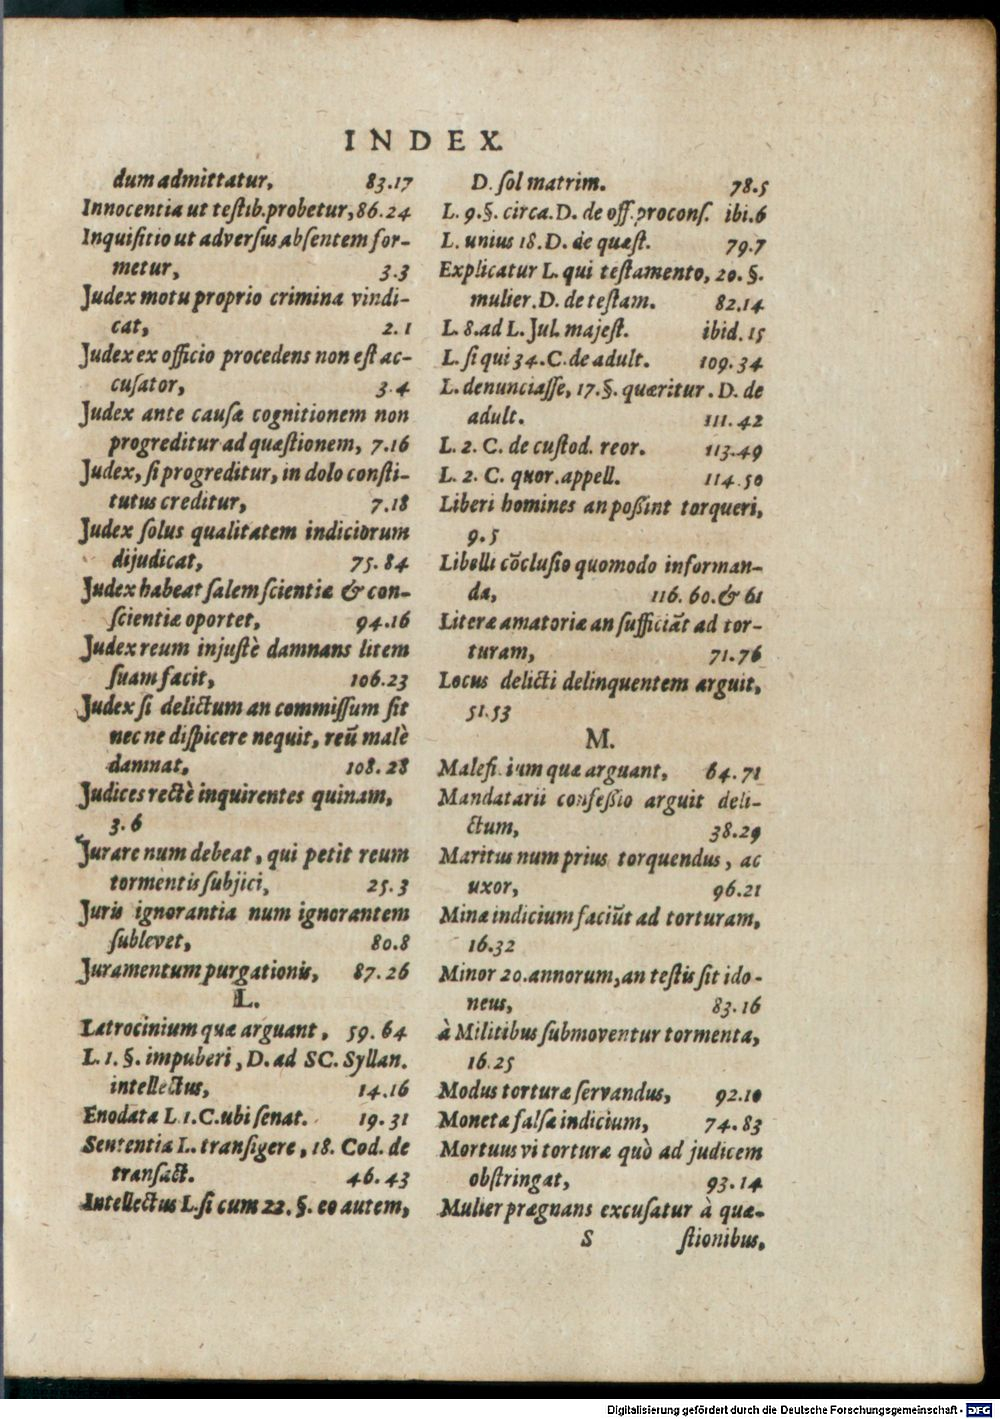 INDEX.
dum admittatur, 83.17
Innocentia ut testib. probetur, 86.24
Inquisitio ut adversus absentem for-
metur, 3.3
Judex motu proprio crimina vindi-
cat, 2.1
Judex ex officio procedens non est ac-
cusator, 3.4
Judex ante causæ cognitionem non
progreditur ad quæstionem, 7.16
Judex, si progreditur, in dolo consti-
tutus creditur, 7.18
Judex solus qualitatem indiciorum
dijudicat, 75.84
Judex habeat salem scientiæ & con-
scientiæ oportet, 94.16
Judex reum injustè damnans litem
suam facit, 106.23
Judex si delictum an commissum sit
nec ne dispicere nequit, reũ malè
damnat, 108.28
Judices rectè inquirentes quinam,
3.6
Jurare num debeat, qui petit reum
tormentis subjici, 25.3
Juris ignorantia num ignorantem
sublevet, 80.8
Juramentum purgationis, 87.26
L.
Latrocinium quæ arguant, 59.64
L. 1. §. impuberi, D. ad SC. Syllan.
intellectus, 14.16
Enodata L. 1. C. ubi senat. 19.31
Sententia L. transigere, 18. Cod. de
transact. 46.43
Intellectus L. si cum 22. §. eo autem,
D. sol matrim. 78.5
L. 9. §. circa. D. de off. proconf. ibi.6
L. unius 18. D. de quæst. 79.7
Explicatur L. qui testamento, 20. §.
mulier. D. de testam. 82.14
L. 8. ad L. Jul. majest. ibid. 15
L. si qui 34. C. de adult. 109.34
L. denunciasse, 17. §. quæritur. D. de
adult. 111.42
L. 2. C. de custod. reor. 113.49
L. 2. C. quor. appell. 114.50
Liberi homines an possint torqueri,
9.5
Libelli cõclusio quomodo informan-
da, 116. 60. & 61
Literæ amatoriæ an sufficiãt ad tor-
turam, 71.76
Locus delicti delinquentem arguit,
51.53
M.
quæ arguant, 64.71
Mandatarii confessio arguit deli-
ctum, 38.29
Maritus num prius torquendus, ac
uxor, 96.21
Minæ indicium faciũt ad torturam,
16.32
Minor 20. annorum, an testis sit ido-
neus, 83.16
à Militibus submoventur tormenta,
16.25
Modus torturæ servandus, 92.10
Monetæ falsæ indicium, 74.83
Mortuus vi torturæ quò ad judicem
obstringat, 93.14
Mulier prægnans excusatur à quæ-
S stionibus,
Digitalisierung gefördert durch die Deutsche Forschungsgemeinschaft - DFG